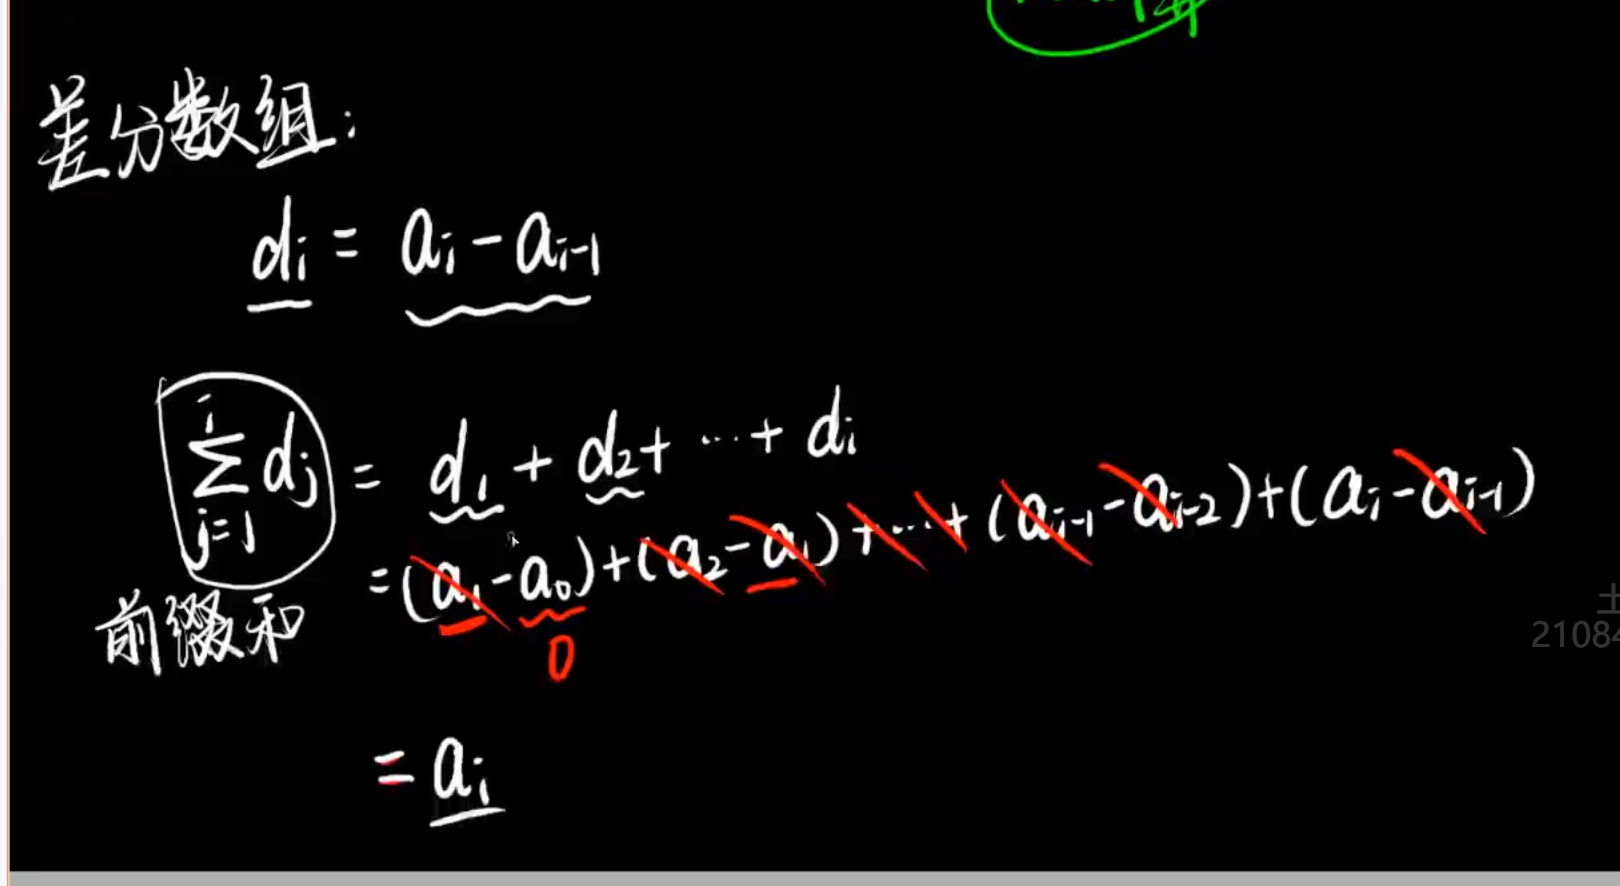 差分数组:
dᵢ = aᵢ - aᵢ₋₁
∑ⱼ₌₁ⁱ dⱼ = d₁ + d₂ + … + dᵢ
= (a₁ - a₀) + (a₂ - a₁) + … + (aᵢ₋₁ - aᵢ₋₂) + (aᵢ - aᵢ₋₁)
前缀和
0
= aᵢ
2108